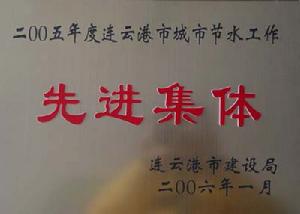 二00五年度连云港市城市节水工作
先进集体
连云港市建设局
二00六年一月